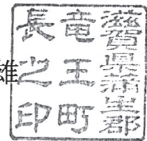 雄
滋賀県蒲生郡
竜王町
長之印